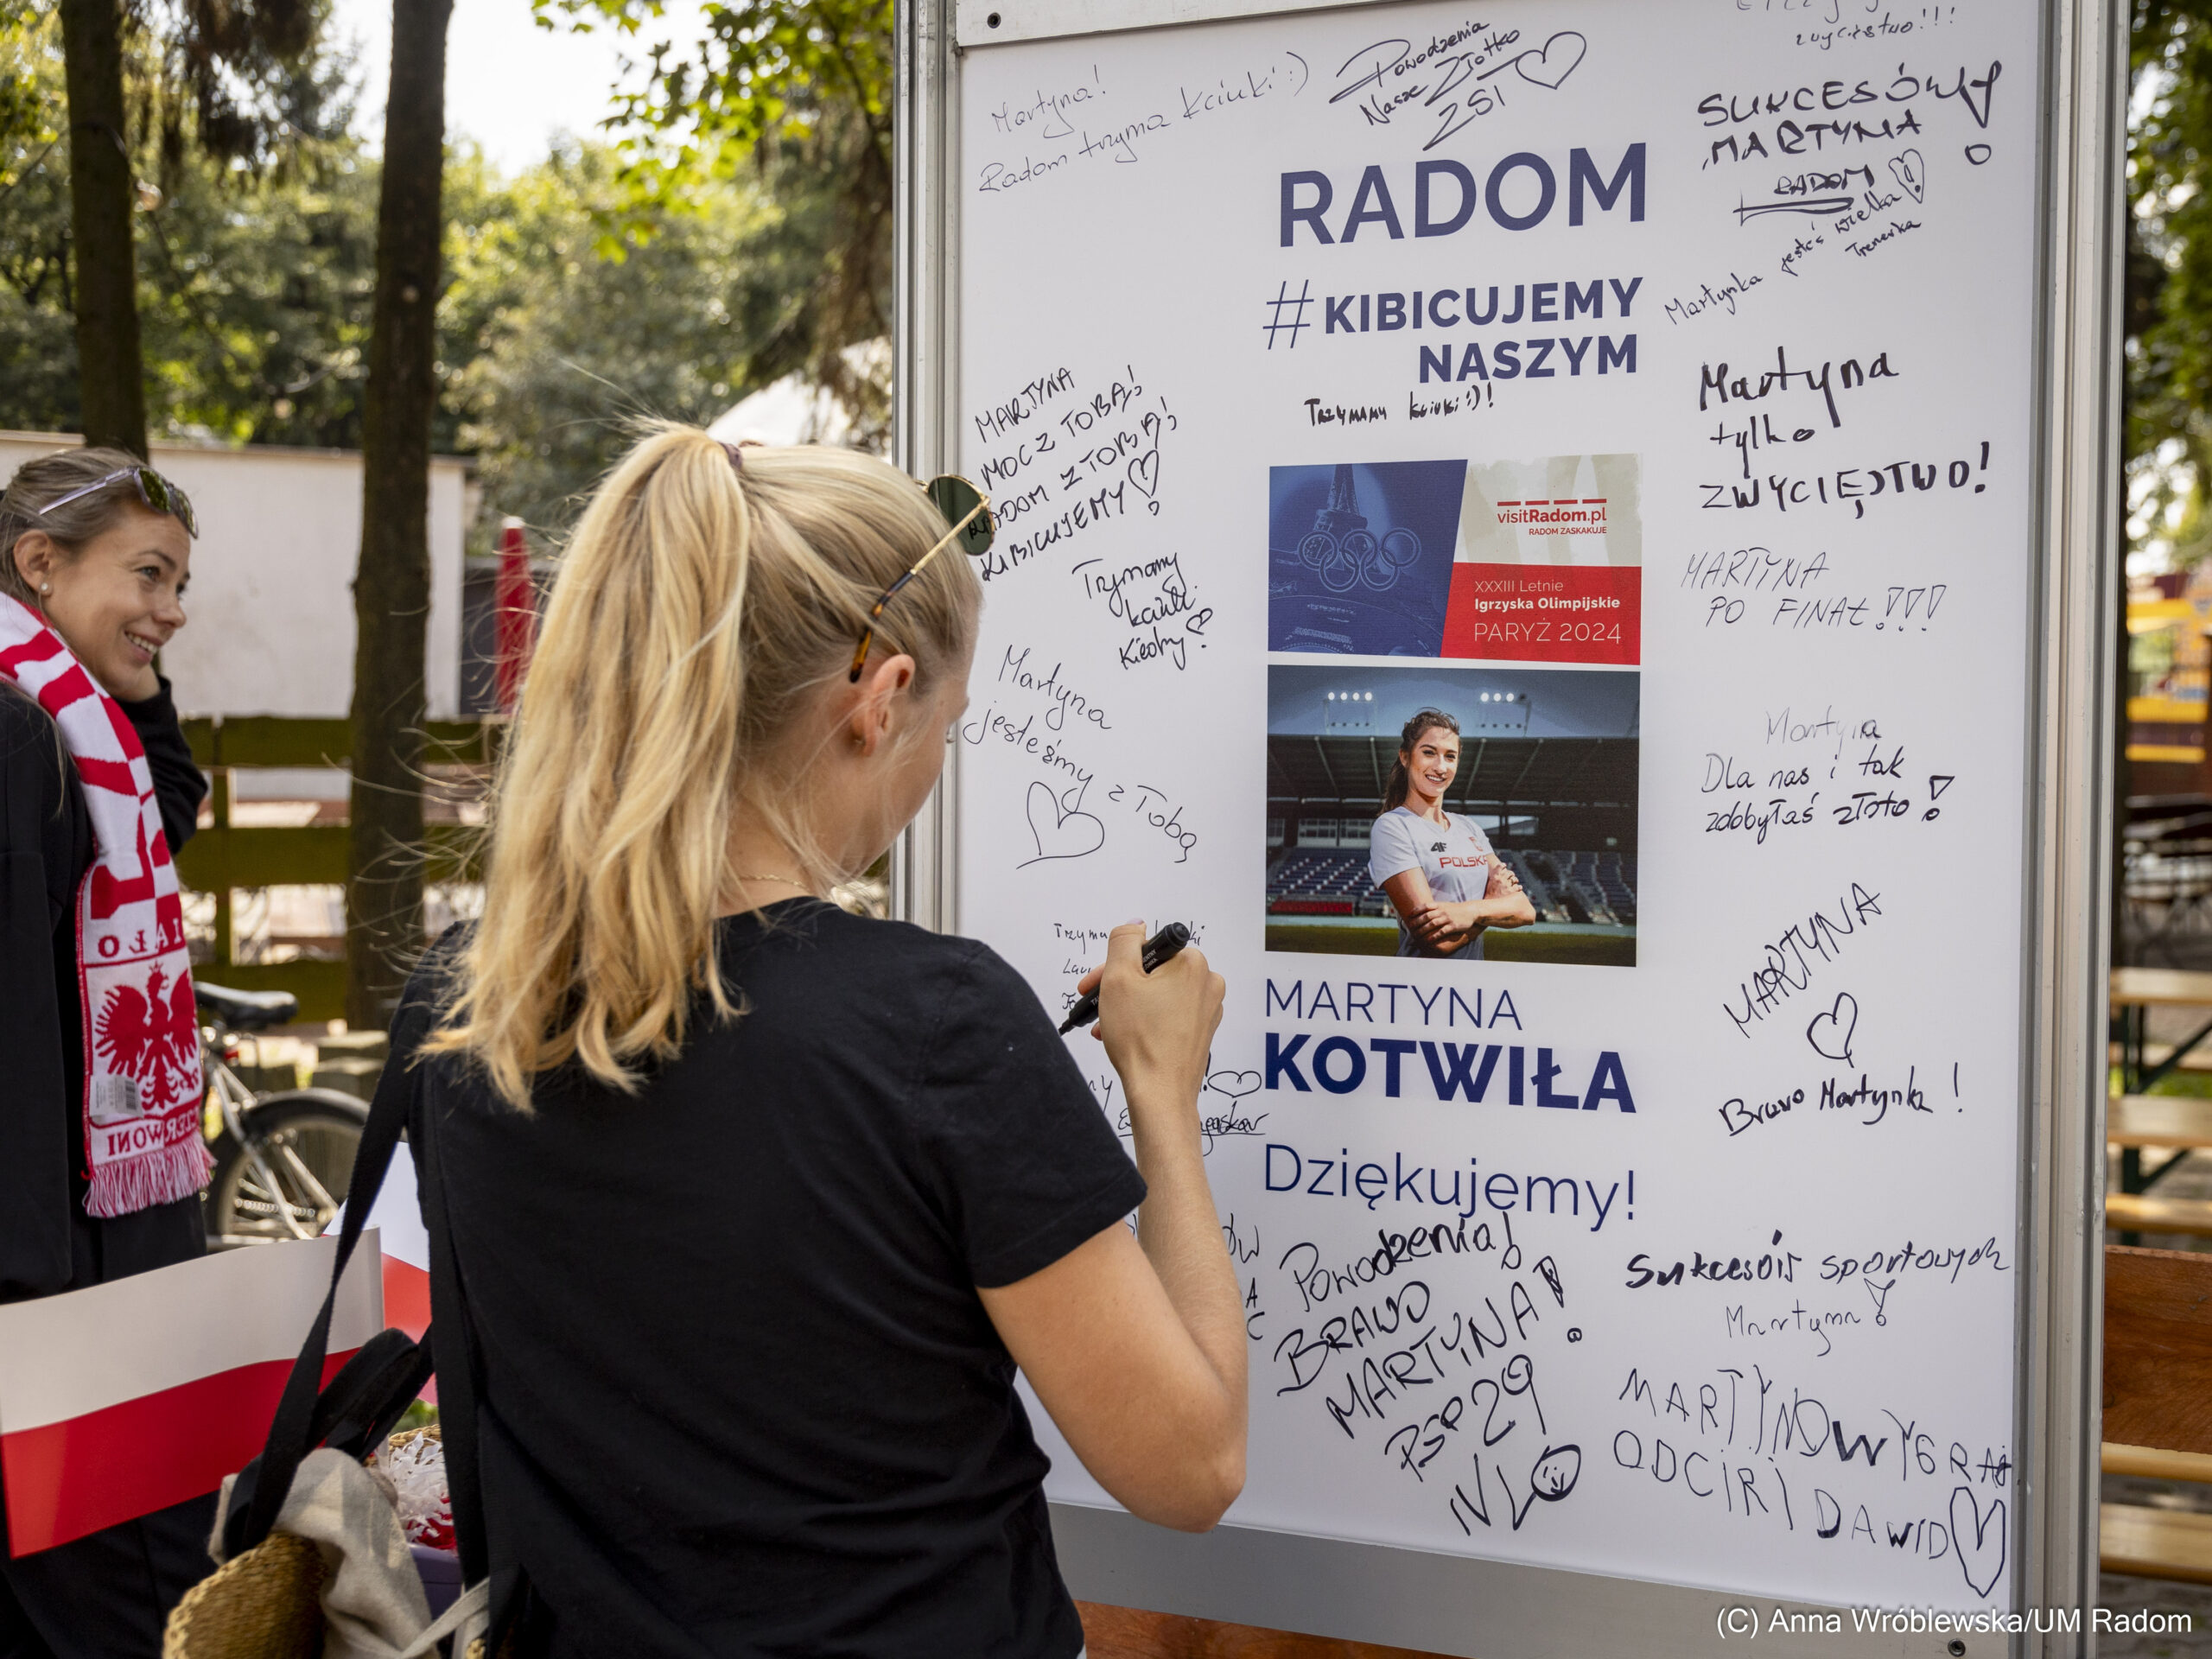 zwycięstwo!!!
Martyna!
Radom trzyma kciuki :)
Powodzenia
Nasze Złotko
ZSI
SUKCESÓW
MARTYNA
RADOM
Martynka jesteś wielka
Trenerka
RADOM
#KIBICUJEMY
NASZYM
TRZYMAMY kciuki :)!
MARTYNA
MOC Z TOBĄ!
RADOM Z TOBĄ!
KIBICUJEMY
Trzymamy
kciuki
Martyna
jesteśmy z Tobą
Martyna
tylko
ZWYCIĘSTWO!
MARTYNA
PO FINAŁ!!!
visitRadom.pl
RADOM ZASKAKUJE
XXXIII Letnie
Igrzyska Olimpijskie
PARYŻ 2024
Martyna
Dla nas i tak
zdobyłaś złoto!
4F
POLSKA
MARTYNA
Bravo Martynka!
MARTYNA
KOTWIŁA
Dziękujemy!
Powodzenia!
BRAWO
MARTYNA!
PSP 29
Sukcesów sportowych
Martyna!
MARTYNO WYGRAJ
ODCIRI DAWID
IAŁO
CZERWONI
(C) Anna Wróblewska/UM Radom